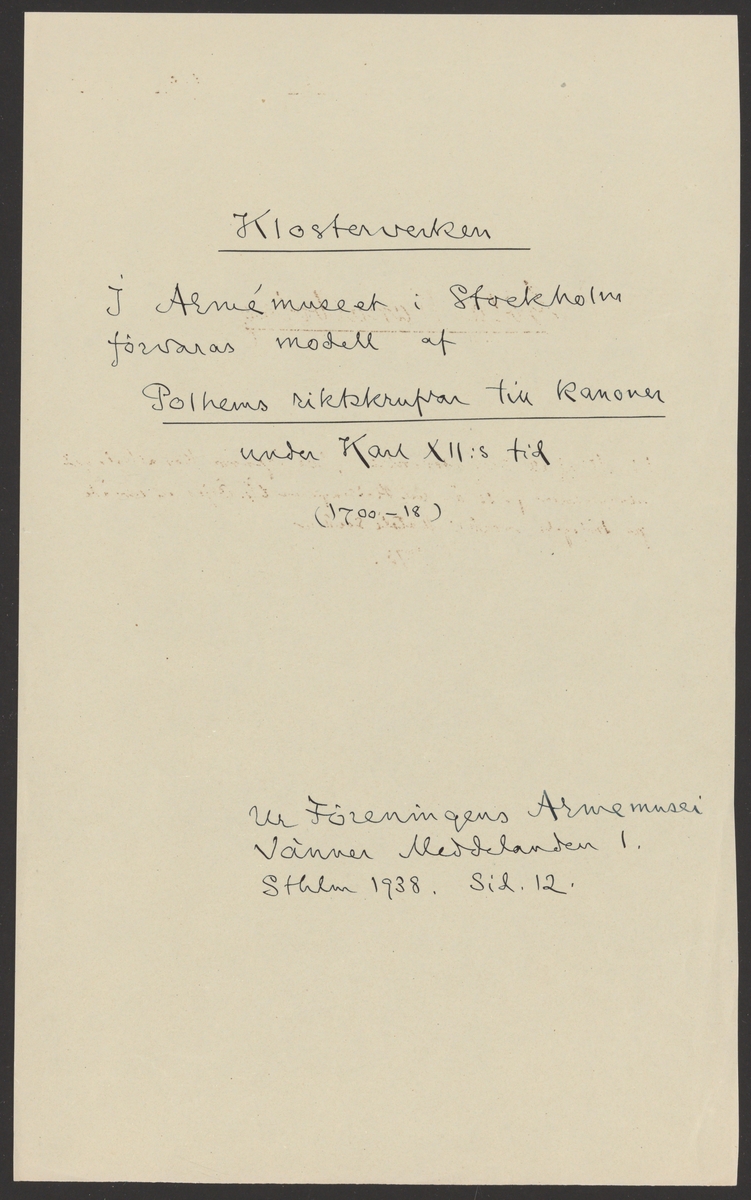 Klosterverken
I Armémuseet i Stockholm
förvaras modell af
Polhems riktskrufvar till kanoner
under Karl XII:s tid
(1700-18)
Ur Föreningens Armemusei
Vänner Meddelanden 1.
Sthlm 1938. Sid. 12.